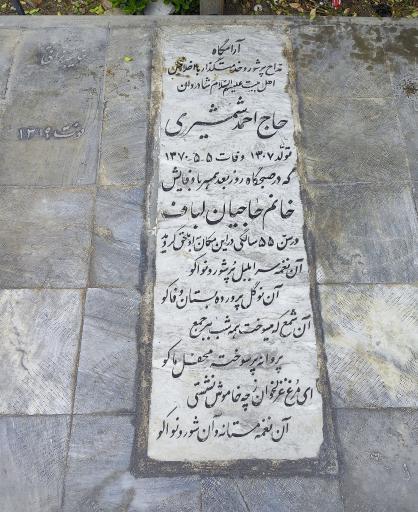 آرامگاه
مداح پرشور و خدمتگذار با اخلاص
اهل بیت علیهم السلام شادروان
حاج احمد شمشیری
تولد ۱۳۰۷ وفات ۵ـ۵ـ۱۳۷۰
که در صبحگاه روز بعد همسر باوفایش
خانم حاجیان لباف
در سن ۵۵ سالگی در این مکان به او ملحق گردید
آن نغمه سرا بلبل پرشور و نوا کو
آن نوگل پرورده بستان وفا کو
آن شمع که میسوخت همه شب بر جمع
پروانه پر سوخته محفل ما کو
ای مرغ غزلخوان ز چه خاموش نشستی
آن نغمه مستانه و آن شور و نوا کو
وفات ۱۳۶۹